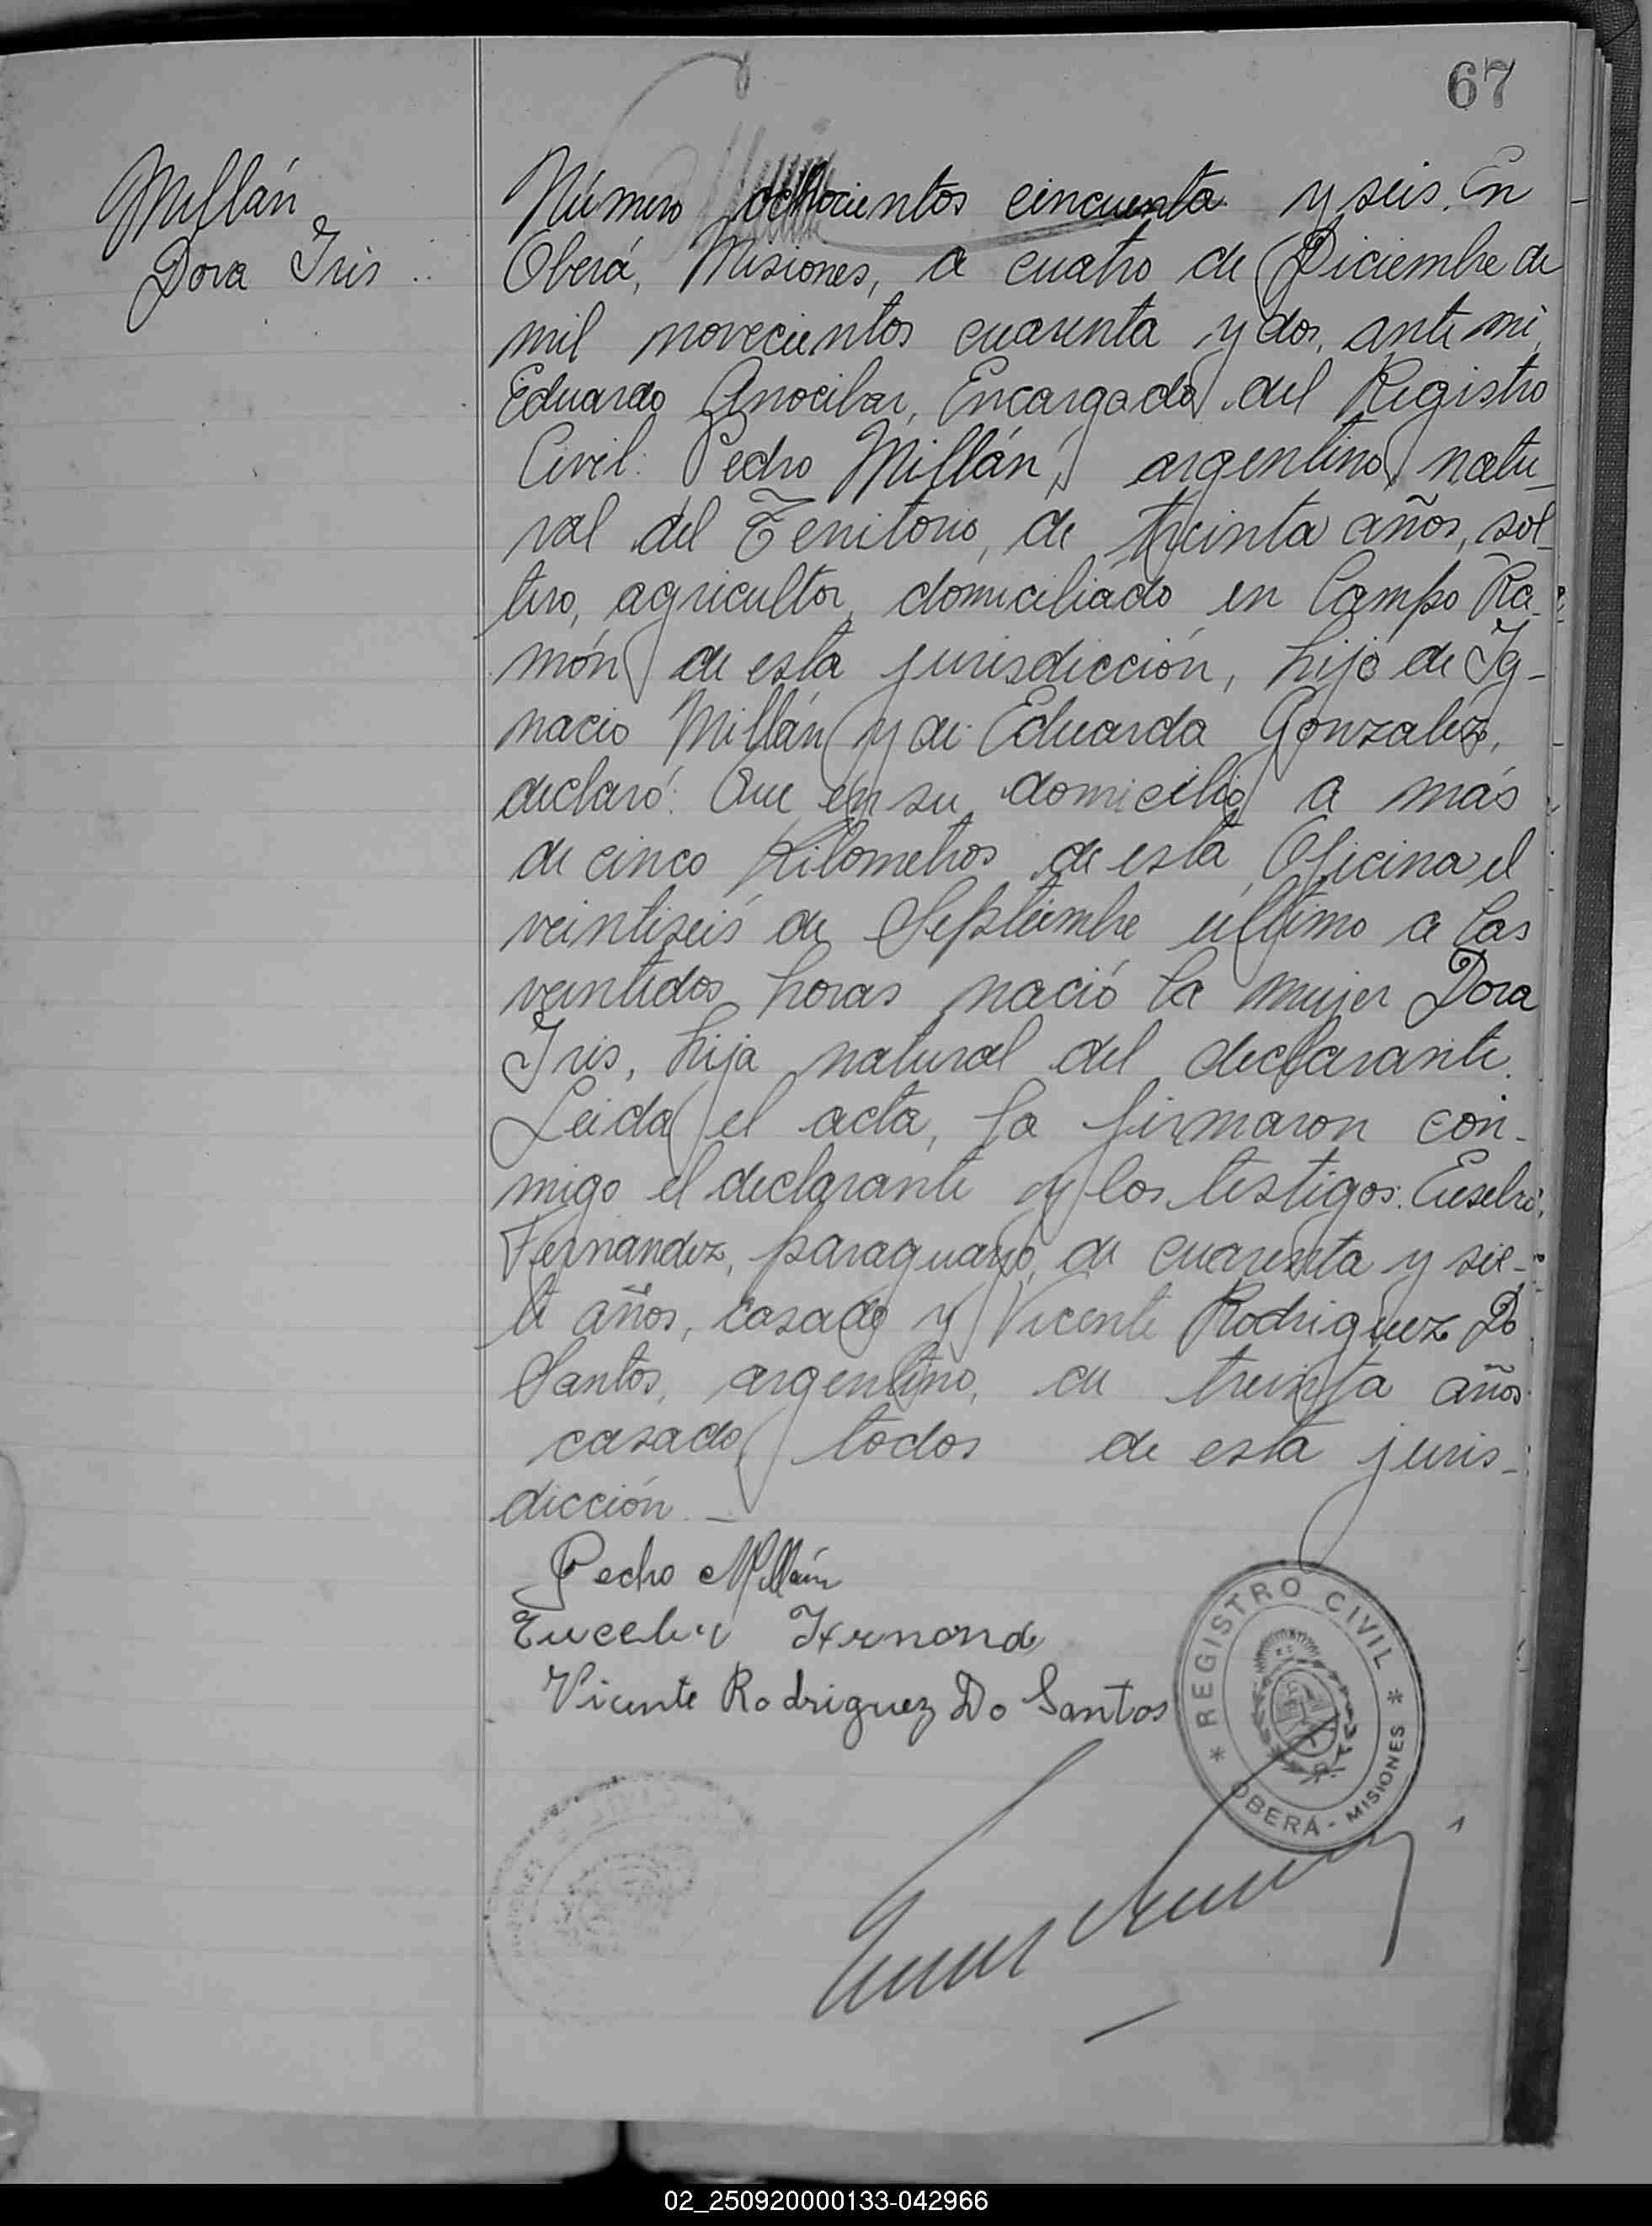 67
Millán
Dora Iris
Número ochocientos cincuenta y seis. En
Oberá, Misiones, a cuatro de Diciembre de
mil novecientos cuarenta y dos, ante mi,
Eduardo Anocibar, Encargado del Registro
Civil: Pedro Millán, argentino, natu-
ral del Territorio, de treinta años, sol-
tero, agricultor, domiciliado en Campo Ra-
món de esta jurisdicción, hijo de Ig-
nacio Millán y de Eduarda Gonzalez,
declaró: Que en su domicilio a más
de cinco kilometros de esta Oficina el
veintiseis de Septiembre último a las
veintidos horas nació la mujer Dora
Iris, hija natural del declarante.
Leida el acta, la firmaron con-
migo el declarante y los testigos: Eusebio
Fernandez, paraguayo, de cuarenta y sie-
te años, casado y Vicente Rodriguez Do
Santos, argentino, de treinta años
casado, todos de esta juris-
dicción.—
Pedro Millán
Fernand
Vicente Rodriguez Do Santos
REGISTRO CIVIL
OBERÁ - MISIONES
02_250920000133-042966